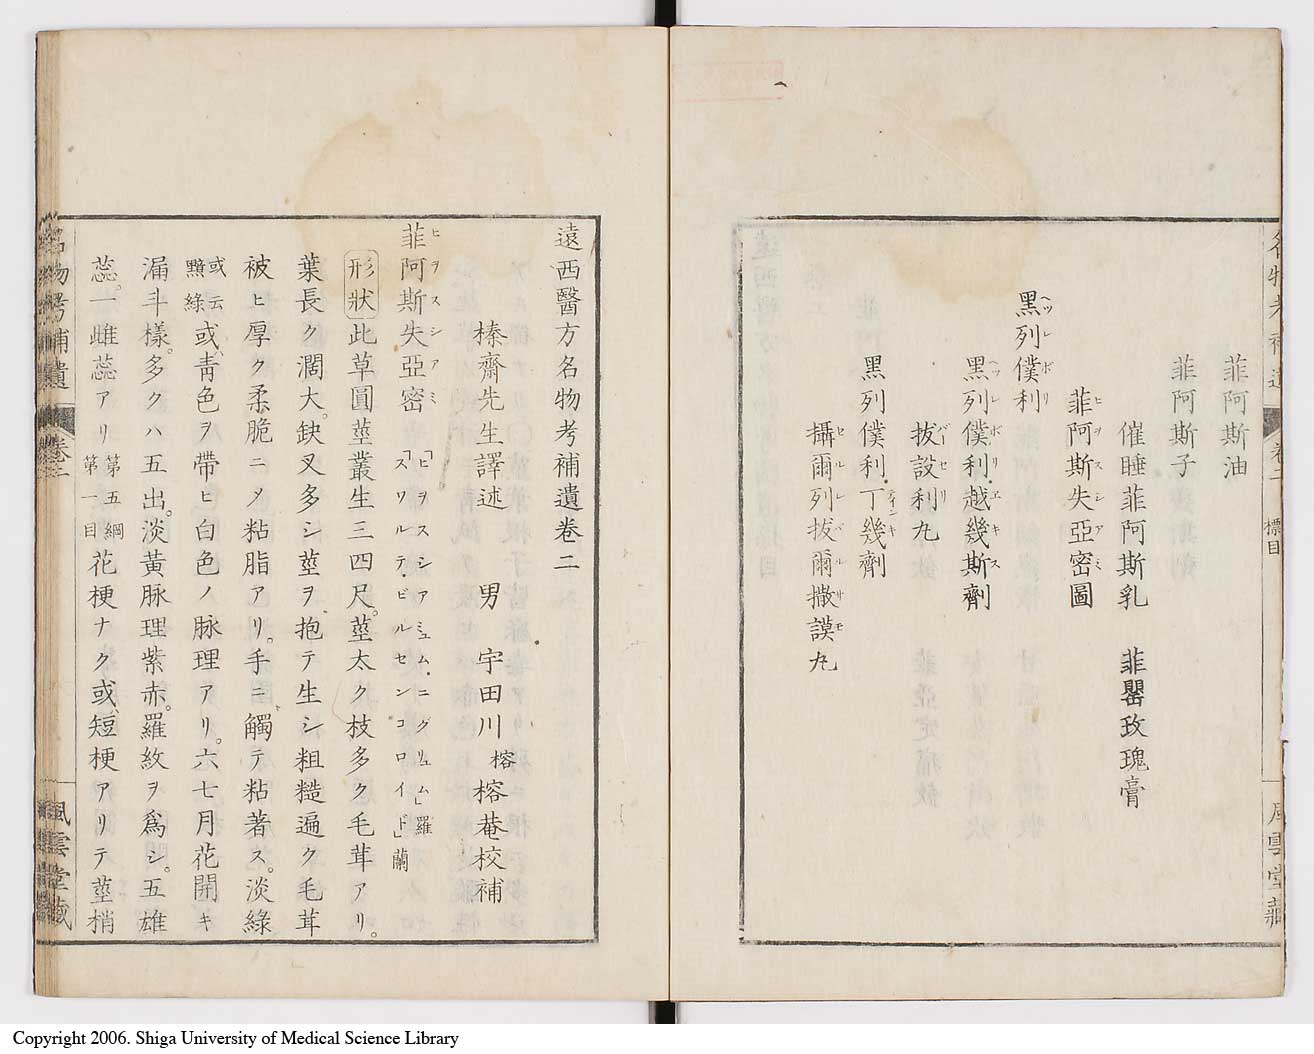 菲阿斯油
菲阿斯子
催睡菲阿斯乳　菲罌玫瑰膏
菲阿斯失亞密圖
ヒヲスシアミ
黑列僕利
ヘツレボリ
黑列僕利越幾斯劑
ヘツレボリエキス
拔設利丸
バセリ
黑列僕利丁幾劑
チンキ
攝爾列拔爾撒謨丸
セルレバルサモ
卷二
標目
風雲堂藏
遠西醫方名物考補遺卷二
榛齋先生譯述　男　宇田川　榕　榕菴校補
菲阿斯失亞密
ヒヲスシアミ
「ヒヲスシアミュム・ニグリュム」羅
「スワルテ・ビルセンコロイド」蘭
形狀　此草圓莖叢生三四尺。莖太ク枝多ク毛茸アリ。
葉長ク濶大。缺叉多シ莖ヲ抱テ生シ粗糙遍ク毛茸
被ヒ厚ク柔脆ニメ粘脂アリ。手ニ觸テ粘著ス。淡綠
或云黯綠或、青色ヲ帶ヒ白色ノ脉理アリ。六七月花開キ
漏斗樣。多クハ五出。淡黃脉理紫赤。羅紋ヲ爲シ。五雄
蕊。一雌蕊アリ第五綱第一目花梗ナク或、短梗アリテ莖梢
名物考補遺
卷二
風雲堂藏
Copyright 2006. Shiga University of Medical Science Library